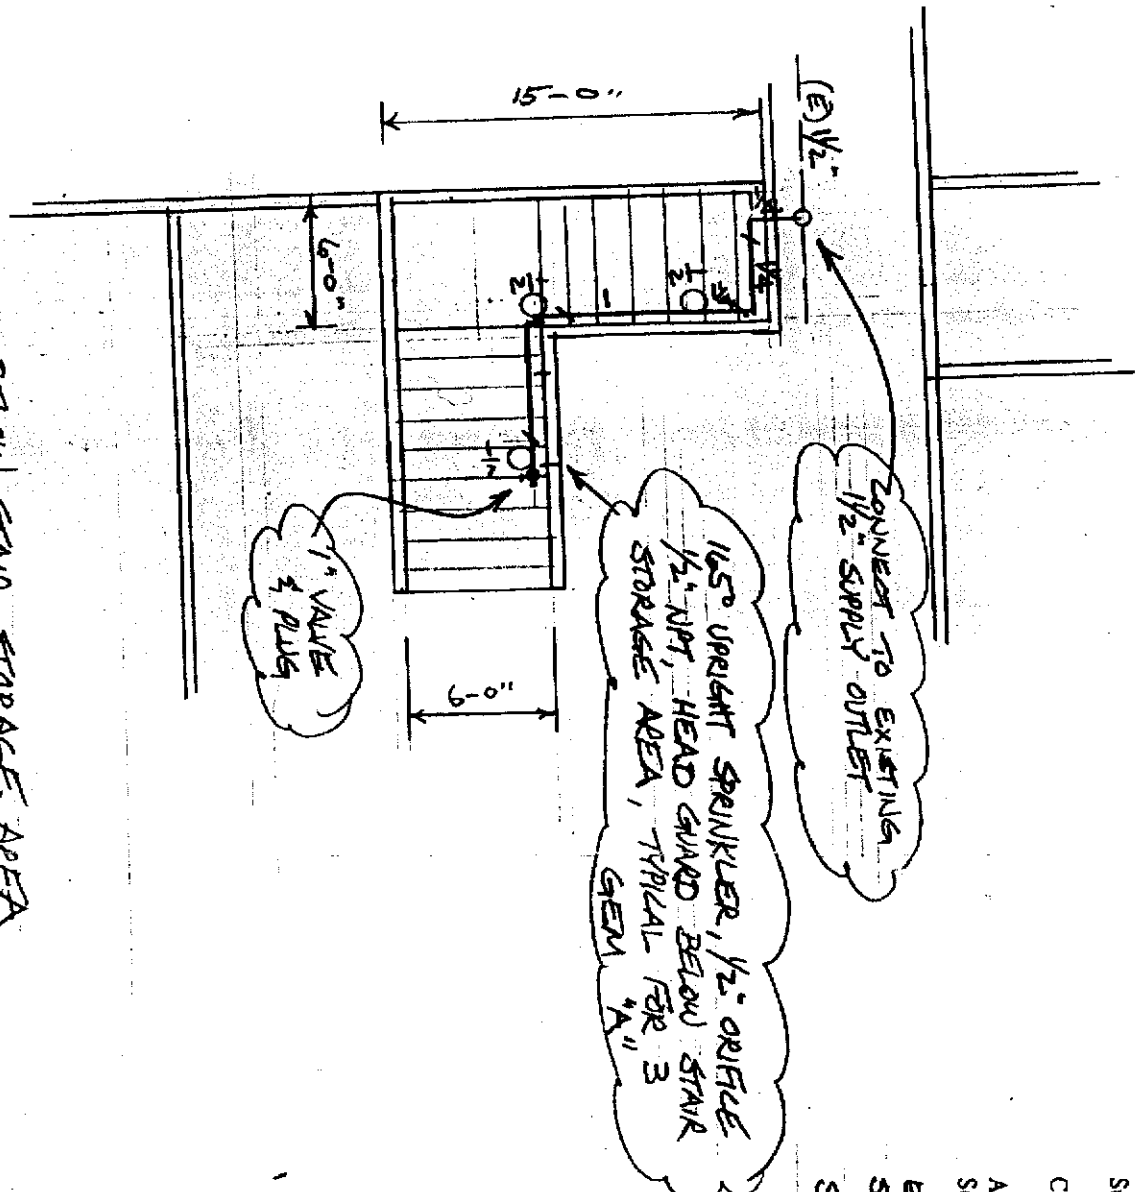 (E) 1 1/2"
15-0"
6-0"
6-0"
CONNECT TO EXISTING
1 1/2" SUPPLY OUTLET
165° UPRIGHT SPRINKLER, 1/2" ORIFICE
1/2" NPT, HEAD GUARD BELOW STAIR
STORAGE AREA, TYPICAL FOR 3
GEM "A"
1" VALVE
& PLUG
1 1/4
1
1/2
1/2
1/2
STORAGE AREA